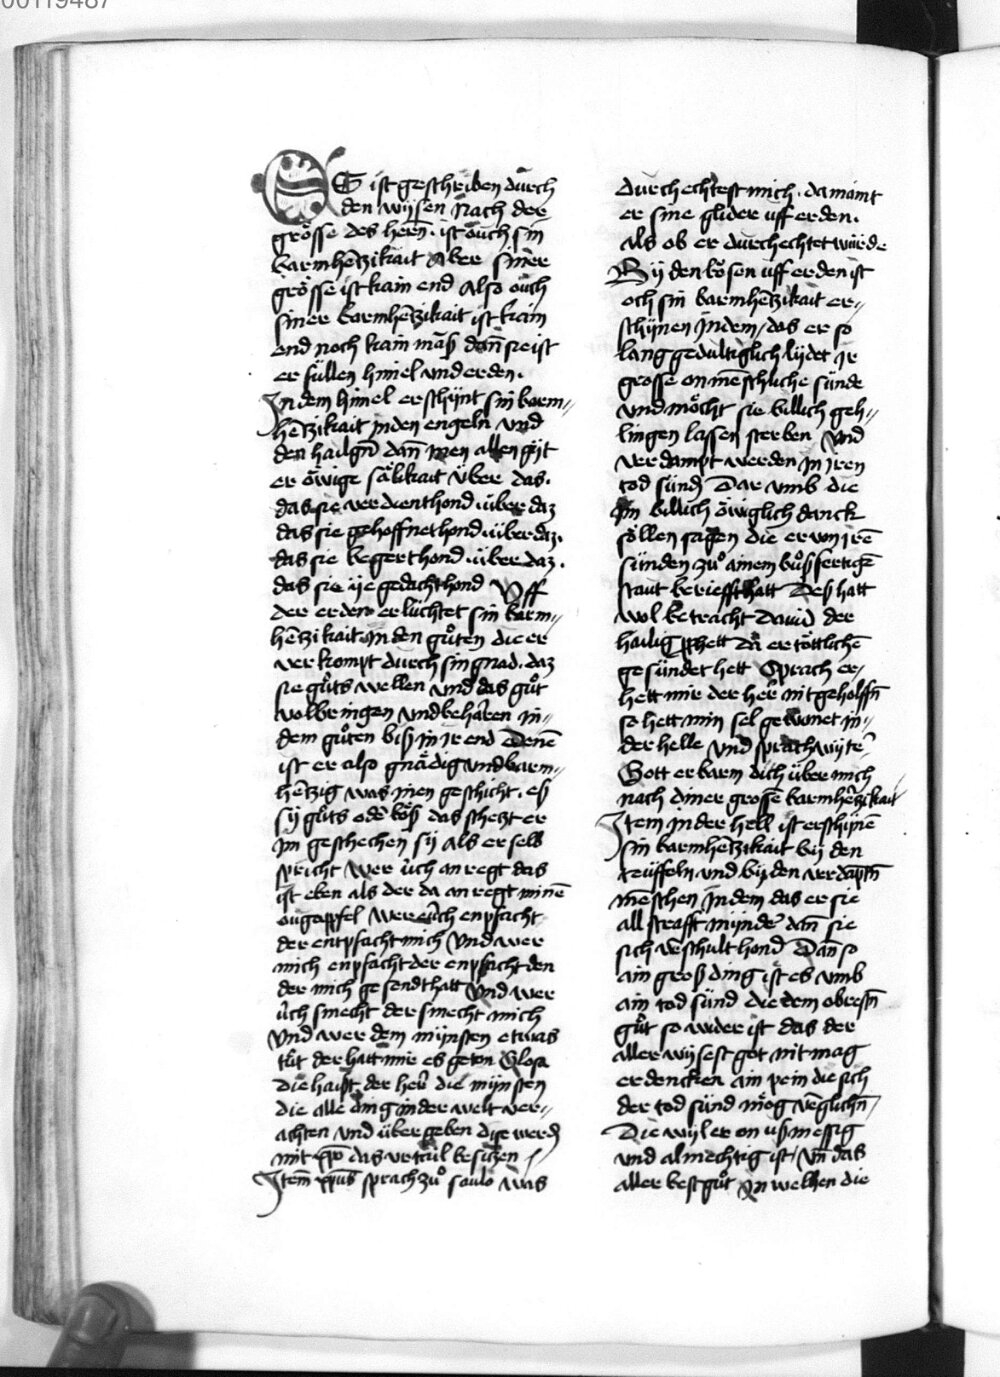 00119487
ES ist geschriben durch
den wysen Nach der
grösse des herrn̄. ist ouch sin
barmhe͂tzikait Aber siner
grösse ist kain end Also ouch
siner barmhe͂tzikait ist kain
end noch kain maß dan̄ sie ist
er füllen himel und erden.
In dem himel erschÿnt sin barm„
he͂tzikait in den engeln und
den hailgn̄ dan̄ inen allen git
er öwige sälikait über das.
das sie verdient hond. über daz
das sie gehoffnet hond. über daz.
das sie begert hond. über daz.
das sie ÿe gedacht hond Uff
der erden erlüchtet sin barm„
he͂tzikait. in den gůten die er
verkompt durch sin gnad. daz
sie gůts wellen und das gůt
volbringen und beharen in„
dem gůten biß in ir end Denē
ist er also gnädig und barm„
he͂tzig was inen geschicht. eß
sÿ gůts oder böß das schetzt er
im geschechen sÿ Als er selb
spricht Wer üch an regt das
ist eben als der da an regt minē
ougapfel Wer euch enpfacht
der entpfacht mich Und wer
mich enpfacht der enpfacht den
der mich gesendt hatt Und wer
üch smecht der smecht mich
Und wer dem mÿnsten etwas
tůt der hatt mir es geton Glosa
die haißt der her̄ die mÿnsten
die alle ding in der welt ver„
achten und übergeben dise werdn̄
mit xp̄o das urtail besitzen
Item xp̄us sprach zů saulo Was
durchechtest mich. da maint
er sine glider uff erden.
Als ob er durchechtet würde
Bÿ den bösen uff erden ist
och sin barmhe͂tzikait er„
schÿnen In dem / das er so
lang gedultiglich lÿdet Ir
grosse onmēschliche sünde
und möcht sie billich geh„
lingen lassen sterben Und
verdampt werden in iren
tod sünd Dar umb die
im billich öwiglich danck
söllen sagen die er von irē
sünden zů ainem bůßfertigē
staut berüefft hatt Deß hatt
wol betracht Dauid der
hailig ꝓphett Da er töttlichē
gesündet hett Sprach er /
hett mir der her nit geholffn̄
so hett min sel gewonet in„
der helle Und sprach wÿter
Gott erbarm dich über mich
nach diner grossē barmhe͂tzikait
Item in der hell ist erschÿnē
sin barmhe͂tzikait bÿ den
teüffeln. und bÿ den verdāptn̄
mēschen In dem das er sie
all strafft mÿnder dan̄ sie
sich verschult hond Dan̄ so
ain groß ding ist es umb
ain tod sünd die dem obrestn̄
gůt so wider ist das der
aller wÿsest got nit mag
erdencken ain pein die sich
der tod sünd mög v͂glichn̄ /
Die wÿl er on ußmessig
und almechtig ist / Un̄ das
aller best gůt In welhen die